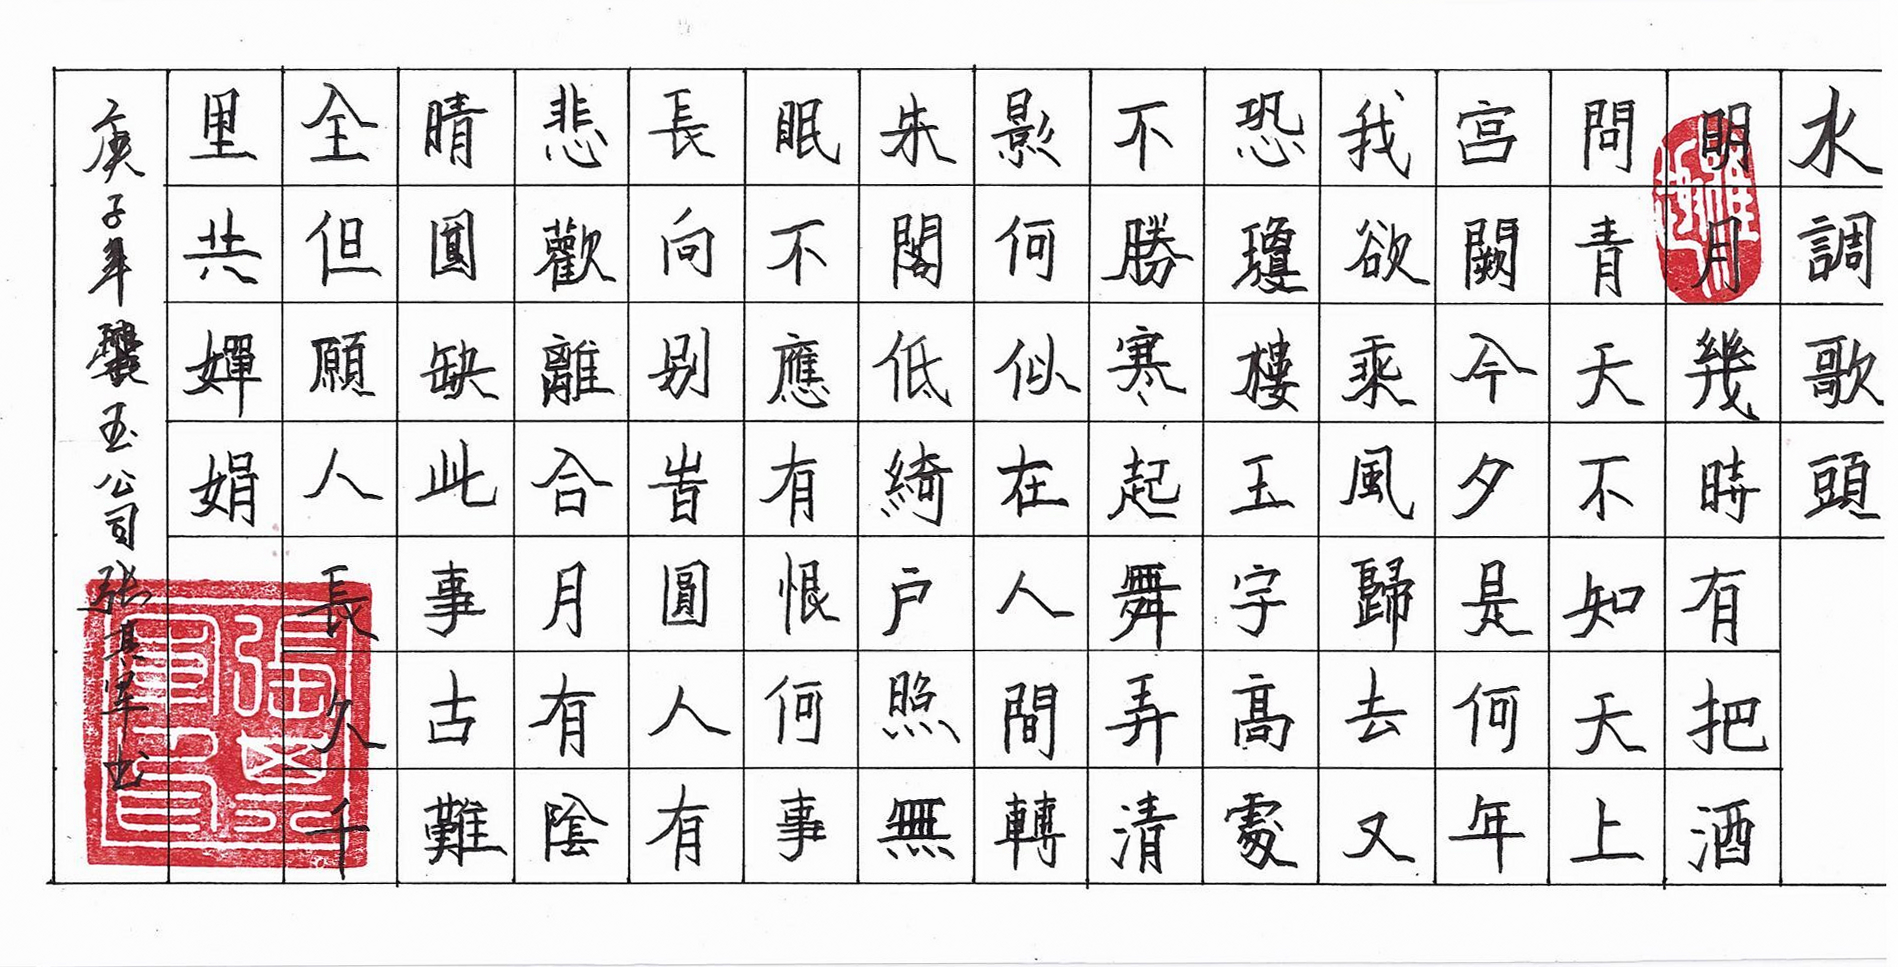 水調歌頭
明月幾時有把酒
問青天不知天上
宫闕今夕是何年
我欲乘風歸去又
恐瓊樓玉宇高處
不勝寒起舞弄清
影何似在人間轉
朱閣低綺户照無
眠不應有恨何事
長向别旹圓人有
悲歡離合月有陰
晴圓缺此事古難
全但願人長久千
里共嬋娟
庚子年玉公司張其軍书